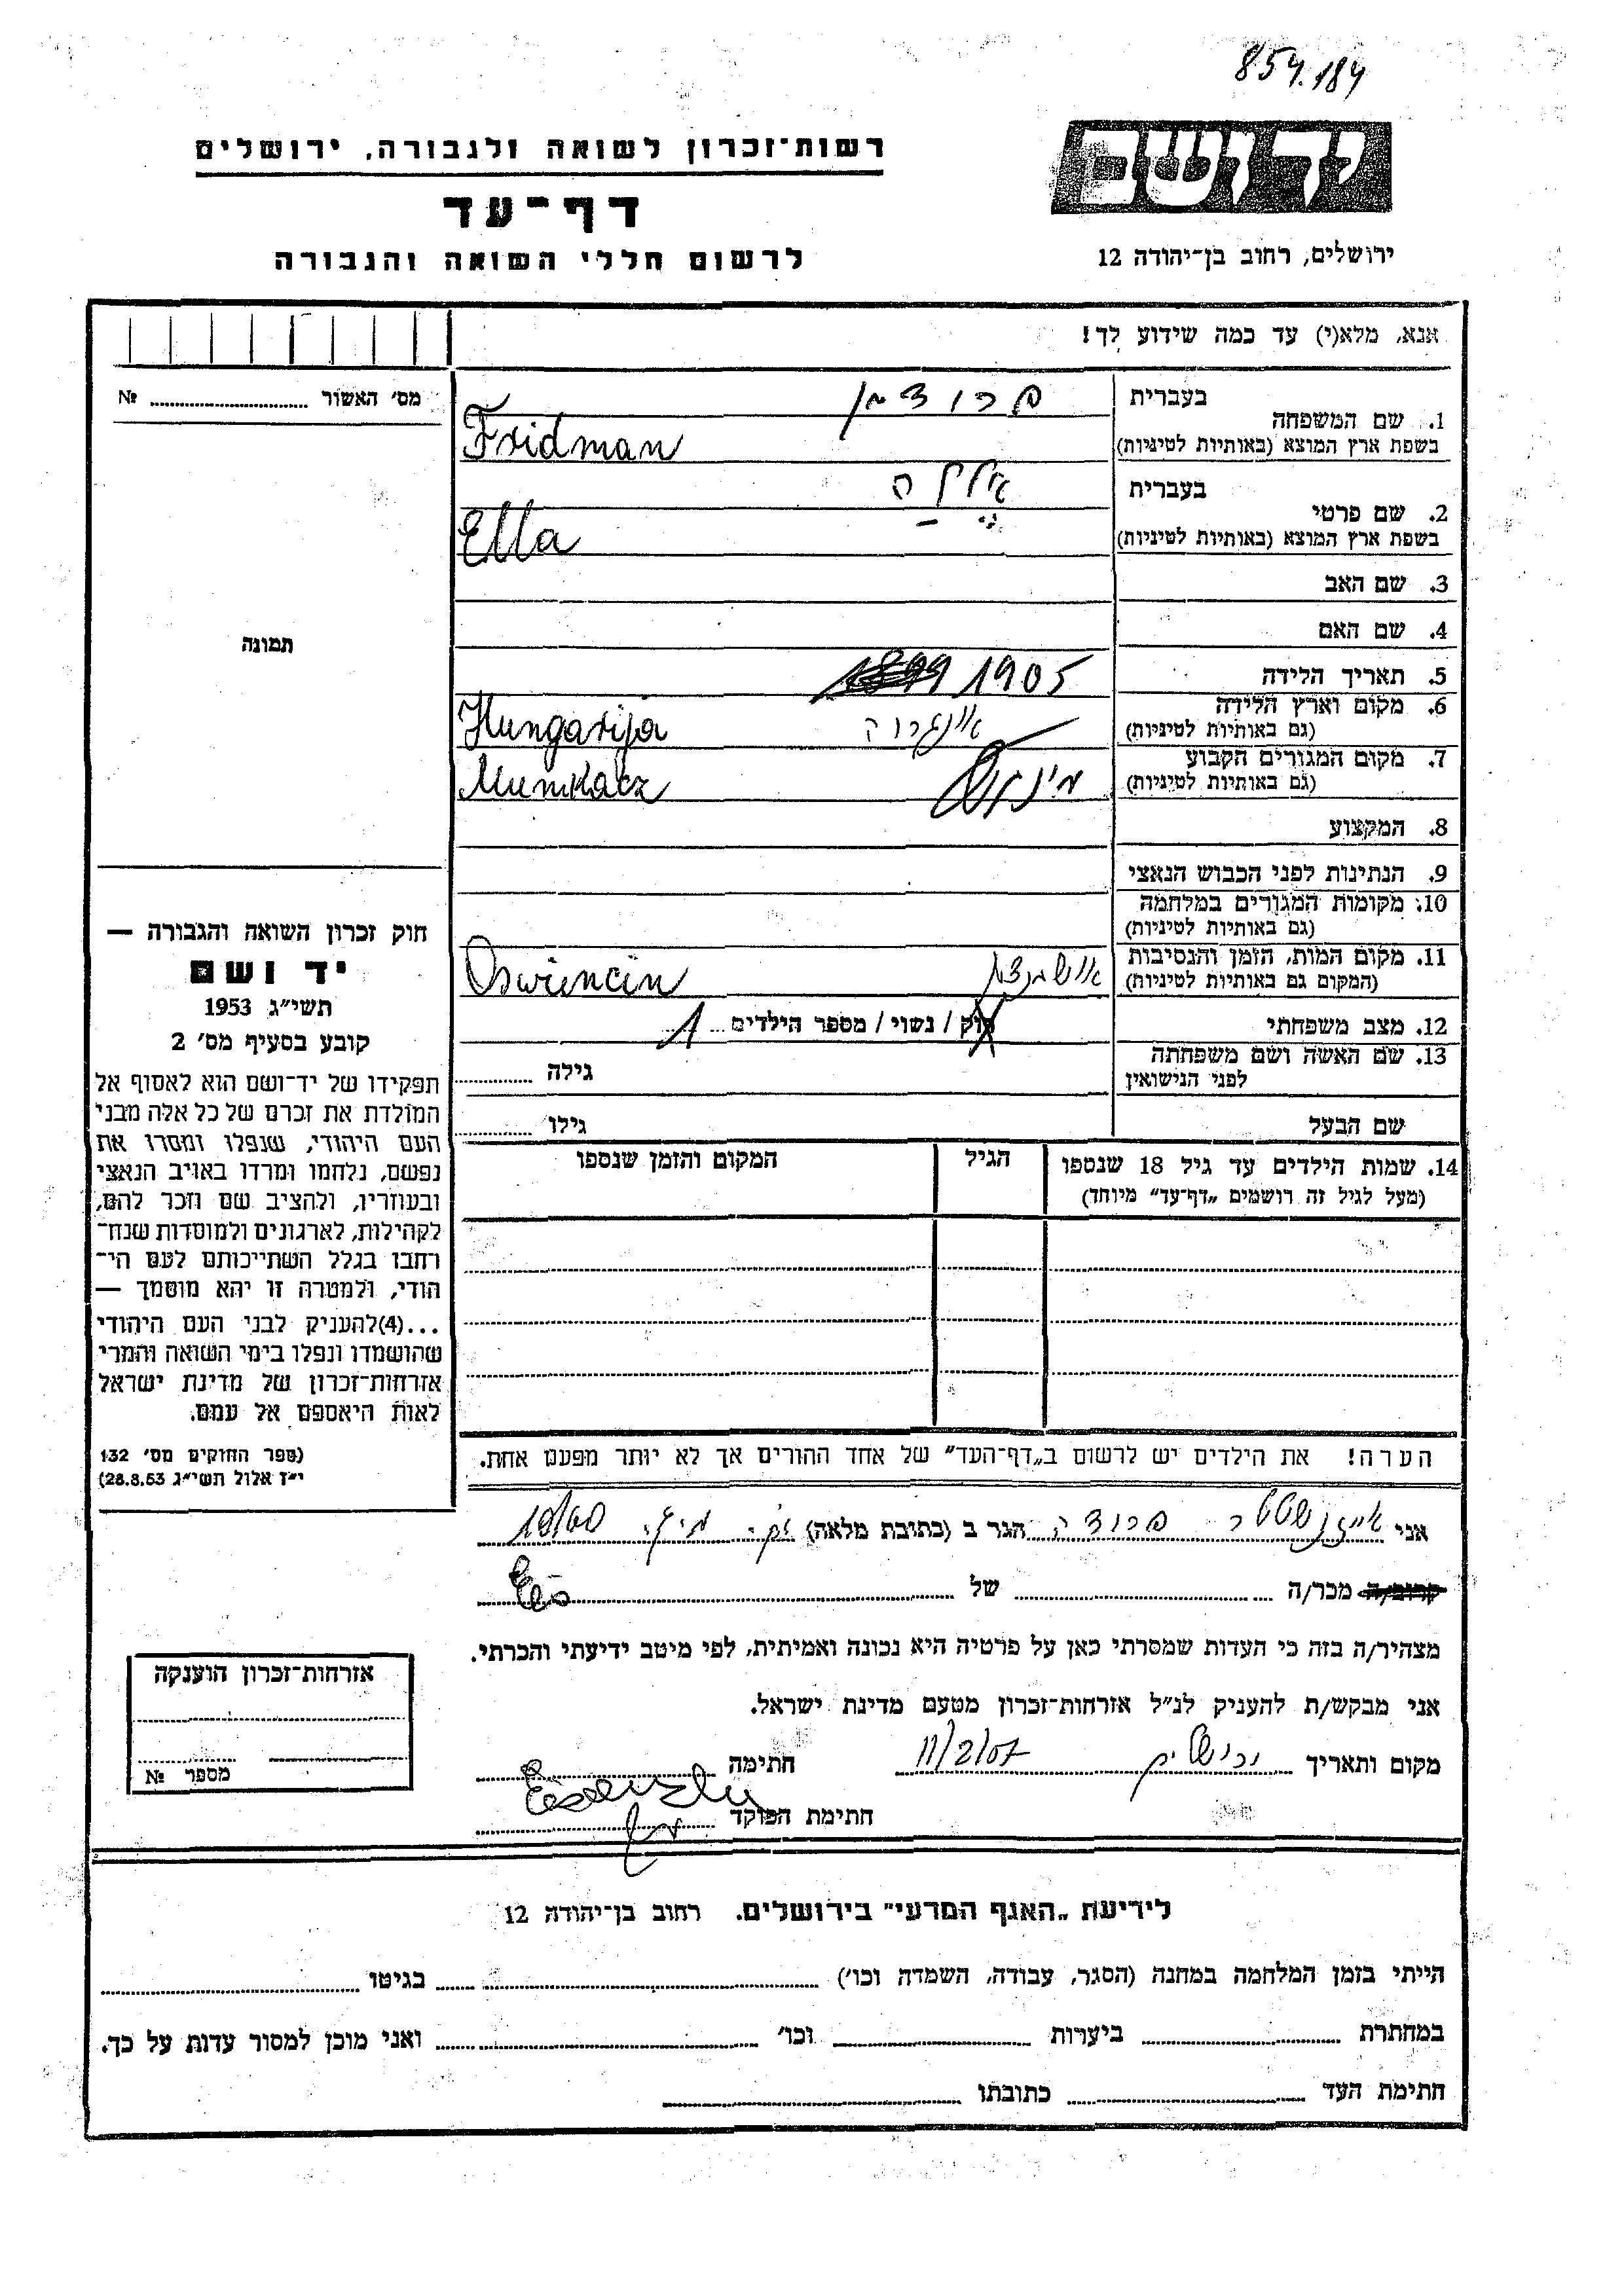 854.184
רשות־זכרון לשואה ולגבורה, ירושלים
דף־עד
לרשום חללי השואה והגבורה
יד ושם
ירושלים, רחוב בן־יהודה 12
אנא, מלא(י) עד כמה שידוע לך!
מס׳ האשור № 
בעברית
1. שם המשפחה
בשפת ארץ המוצא (באותיות לטיניות) Fridman
בעברית
2. שם פרטי
בשפת ארץ המוצא (באותיות לטיניות) Ella
3. שם האב
4. שם האם
תמונה
5. תאריך הלידה 1905
6. מקום וארץ הלידה
(גם באותיות לטיניות) Hungarija
7. מקום המגורים הקבוע
(גם באותיות לטיניות) Munkacz
8. המקצוע
9. הנתינות לפני הכבוש הנאצי
10. מקומות המגורים במלחמה
(גם באותיות לטיניות)
11. מקום המות, הזמן והנסיבות
(המקום גם באותיות לטיניות) Oswiencin
12. מצב משפחתי רוק / נשוי / מספר הילדים 1
13. שם האשה ושם משפחתה
לפני הנישואין גילה
שם הבעל גילו
14. שמות הילדים עד גיל 18 שנספו הגיל המקום והזמן שנספו
(מעל לגיל זה רושמים „דף־עד״ מיוחד)
חוק זכרון השואה והגבורה —
יד ושם
תשי״ג 1953
קובע בסעיף מס׳ 2
תפקידו של יד־ושם הוא לאסוף אל
המולדת את זכרם של כל אלה מבני
העם היהודי, שנפלו ומסרו את
נפשם, נלחמו ומרדו באויב הנאצי
ובעוזריו, ולהציב שם וזכר להם,
לקהילות, לארגונים ולמוסדות שנח־
רבו בגלל השתייכותם לעם הי־
הודי, ולמטרה זו יהא מוסמך —
...(4)להעניק לבני העם היהודי
שהושמדו ונפלו בימי השואה והמרי
אזרחות־זכרון של מדינת ישראל
לאות היאספם אל עמם.
(ספר החוקים מס׳ 132
י״ז אלול תשי״ג 28.8.53)
הערה! את הילדים יש לרשום ב„דף־העד״ של אחד ההורים אך לא יותר מפעם אחת.
אני הגר ב (כתובת מלאה) 10/60
קרוב/ה מכר/ה של
מצהיר/ה בזה כי העדות שמסרתי כאן על פרטיה היא נכונה ואמיתית, לפי מיטב ידיעתי והכרתי.
אני מבקש/ת להעניק לנ״ל אזרחות־זכרון מטעם מדינת ישראל.
מקום ותאריך ירושלים חתימה
חתימת הפוקד
אזרחות־זכרון הוענקה
מספר №
לידיעת „האגף המדעי״ בירושלים. רחוב בן־יהודה 12
הייתי בזמן המלחמה במחנה (הסגר, עבודה, השמדה וכו׳) בגיטו
במחתרת ביערות וכו׳ ואני מוכן למסור עדות על כך.
חתימת העד כתובתו